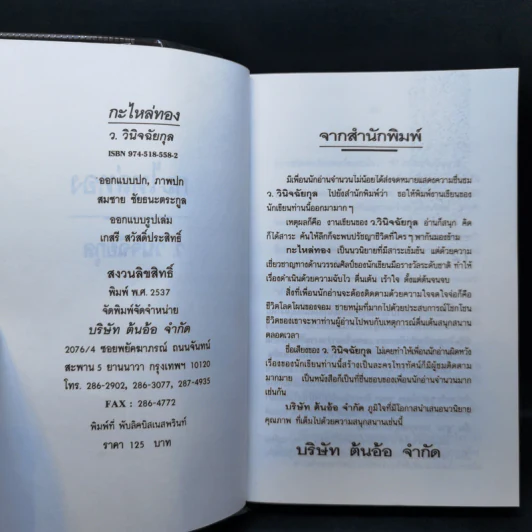 กะไหล่ทอง
ว. วินิจฉัยกุล
ISBN 974-518-558-2
ออกแบบปก, ภาพปก
สมชาย ชัยธนะตระกูล
ออกแบบรูปเล่ม
เกสรี สวัสดิ์ประสิทธิ์
สงวนลิขสิทธิ์
พิมพ์ พ.ศ. 2537
จัดพิมพ์จัดจำหน่าย
บริษัท ต้นอ้อ จำกัด
2076/4 ซอยพยัคฆาภรณ์ ถนนจันทน์
สะพาน 5 ยานนาวา กรุงเทพฯ 10120
โทร. 286-2902, 286-3077, 287-4935
FAX : 286-4772
พิมพ์ที่ พับลิคบิสเนสพรินท์
ราคา 125 บาท
จากสำนักพิมพ์
มีเพื่อนนักอ่านจำนวนไม่น้อยได้ส่งจดหมายแสดงความชื่นชม
ว.วินิจฉัยกุล ไปยังสำนักพิมพ์ว่า ขอให้พิมพ์งานเขียนของ
นักเขียนท่านนี้ออกมามากๆ
เหตุผลก็คือ งานเขียนของ ว.วินิจฉัยกุล อ่านก็สนุก คิด
ก็ได้สาระ ค้นให้ลึกก็จะพบปรัชญาชีวิตที่ใครๆ พากันมองข้าม
กะไหล่ทอง เป็นนวนิยายที่มีสาระเข้มข้น แต่ด้วยความ
เชี่ยวชาญทางด้านวรรณศิลป์ของนักเขียนมือรางวัลระดับชาติ ทำให้
เรื่องดำเนินด้วยความฉับไว ตื่นเต้น เร้าใจ ตั้งแต่ต้นจนจบ
สิ่งที่เพื่อนนักอ่านจะต้องติดตามด้วยความใจจดใจจ่อก็คือ
ชีวิตโลดโผนของจอม ชายหนุ่มที่มากไปด้วยประสบการณ์โชกโชน
ชีวิตของเขาจะพาท่านผู้อ่านไปพบกับเหตุการณ์ตื่นเต้นสนุกสนาน
ตลอดเวลา
ชื่อเสียงของ ว. วินิจฉัยกุล ไม่เคยทำให้เพื่อนนักอ่านผิดหวัง
เรื่องของนักเขียนท่านนี้สร้างเป็นละครโทรทัศน์ก็มีผู้ชมติดตาม
มากมาย เป็นหนังสือก็เป็นที่ชื่นชอบของเพื่อนนักอ่านจำนวนมาก
เช่นกัน
บริษัท ต้นอ้อ จำกัด ภูมิใจที่มีโอกาสนำเสนอนวนิยาย
คุณภาพ ที่เต็มไปด้วยความสนุกสนานเช่นนี้
บริษัท ต้นอ้อ จำกัด